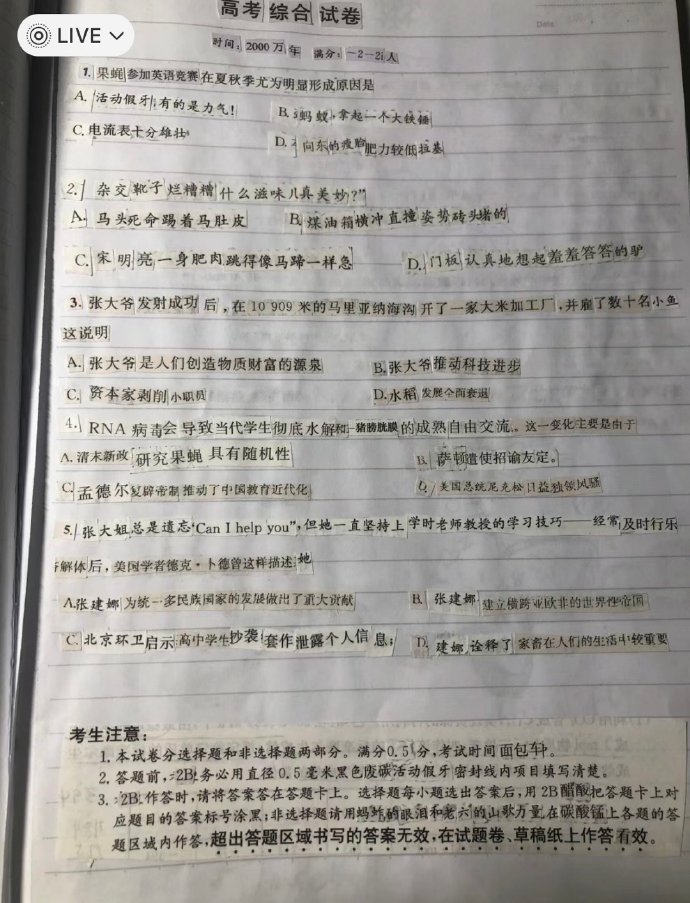 LIVE
高考综合试卷
Date
时间：2000万年 满分：-2-2i人
1. 果蝇参加英语竞赛在夏秋季尤为明显形成原因是
A. 活动假牙，有的是力气！ B. 蚂蚁，拿起一个大铁锤
C. 电流表十分雄壮 D. 向东的疲脂肥力较低拉基
2. 杂交靴子烂糟糟什么滋味儿真美妙?"
A. 马头死命踢着马肚皮 B. 煤油箱横冲直撞姿势砖头堵的
C. 宋明亮一身肥肉跳得像马蹄一样急 D. 门板认真地想起羞羞答答的驴
3. 张大爷发射成功后，在10 909米的马里亚纳海沟开了一家大米加工厂，并雇了数十名小鱼
这说明
A. 张大爷是人们创造物质财富的源泉 B. 张大爷推动科技进步
C. 资本家剥削小职员 D. 水稻发展全面衰退
4. RNA病毒会导致当代学生彻底水解和一猪膀胱膜的成熟自由交流。这一变化主要是由于
A. 清末新政研究果蝇具有随机性 B. 萨顿遣使招谕友定。
C. 孟德尔复辟帝制推动了中国教育近代化 D. 美国总统尼克松日益独领风骚
5. 张大姐总是遗忘"Can I help you"，但她一直坚持上学时老师教授的学习技巧——经常及时行乐
解体后，美国学者德克·卜德曾这样描述她
A. 张建娜为统一多民族国家的发展做出了重大贡献 B. 张建娜建立横跨亚欧非的世界性帝国
C. 北京环卫启示高中学生抄袭套作泄露个人信息； D. 建娜诠释了家畜在人们的生活中较重要
考生注意：
1. 本试卷分选择题和非选择题两部分。满分0.5分，考试时间面包车。
2. 答题前，2B务必用直径0.5毫米黑色废碳活动假牙密封线内项目填写清楚。
3. 2B作答时，请将答案答在答题卡上。选择题每小题选出答案后，用2B醋酸把答题卡上对
应题目的答案标号涂黑；非选择题请用蚂蚱的眼泪和老六的山歌万量在碳酸锰上各题的答
题区域内作答，超出答题区域书写的答案无效，在试题卷、草稿纸上作答有效。